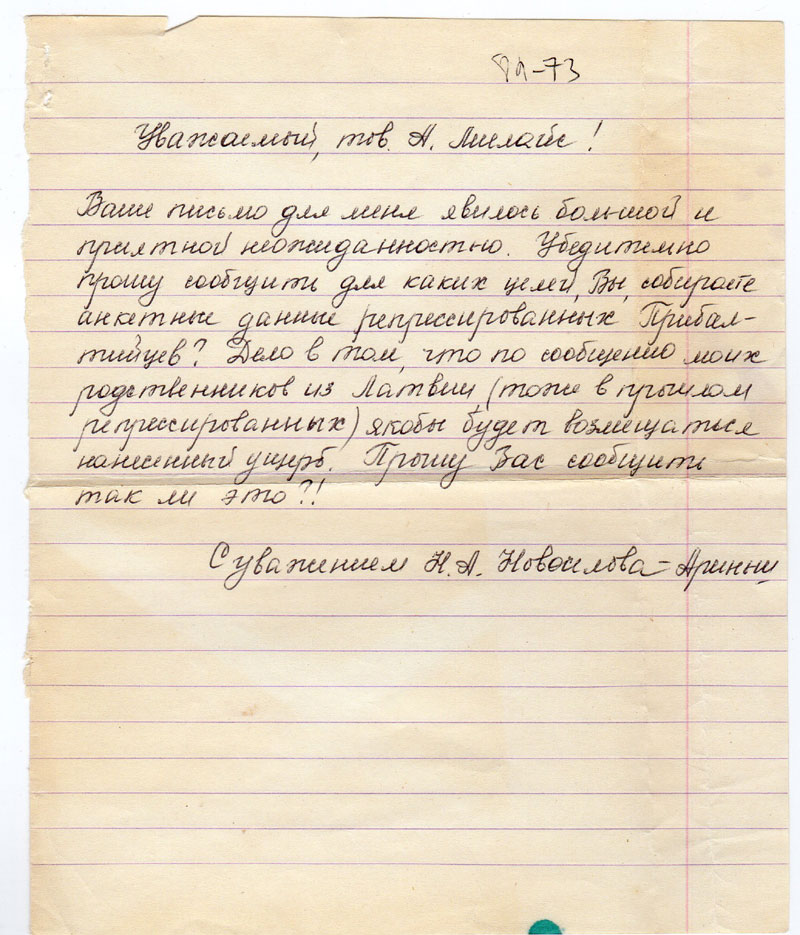 -73
Уважаемый, тов. А. Милайс!
Ваше письмо для меня явилось большой и
приятной неожиданностью. Убедительно
прошу сообщить для каких целей, Вы, собираете
анкетные данные репрессированных Прибал-
тийцев? Дело в том, что по сообщению моих
родственников из Латвии (тоже в прошлом
репрессированных) якобы будет возмещаться
нанесенный ущерб. Прошу Вас сообщить
так ли это?!
С уважением Н.А. Новосилова-